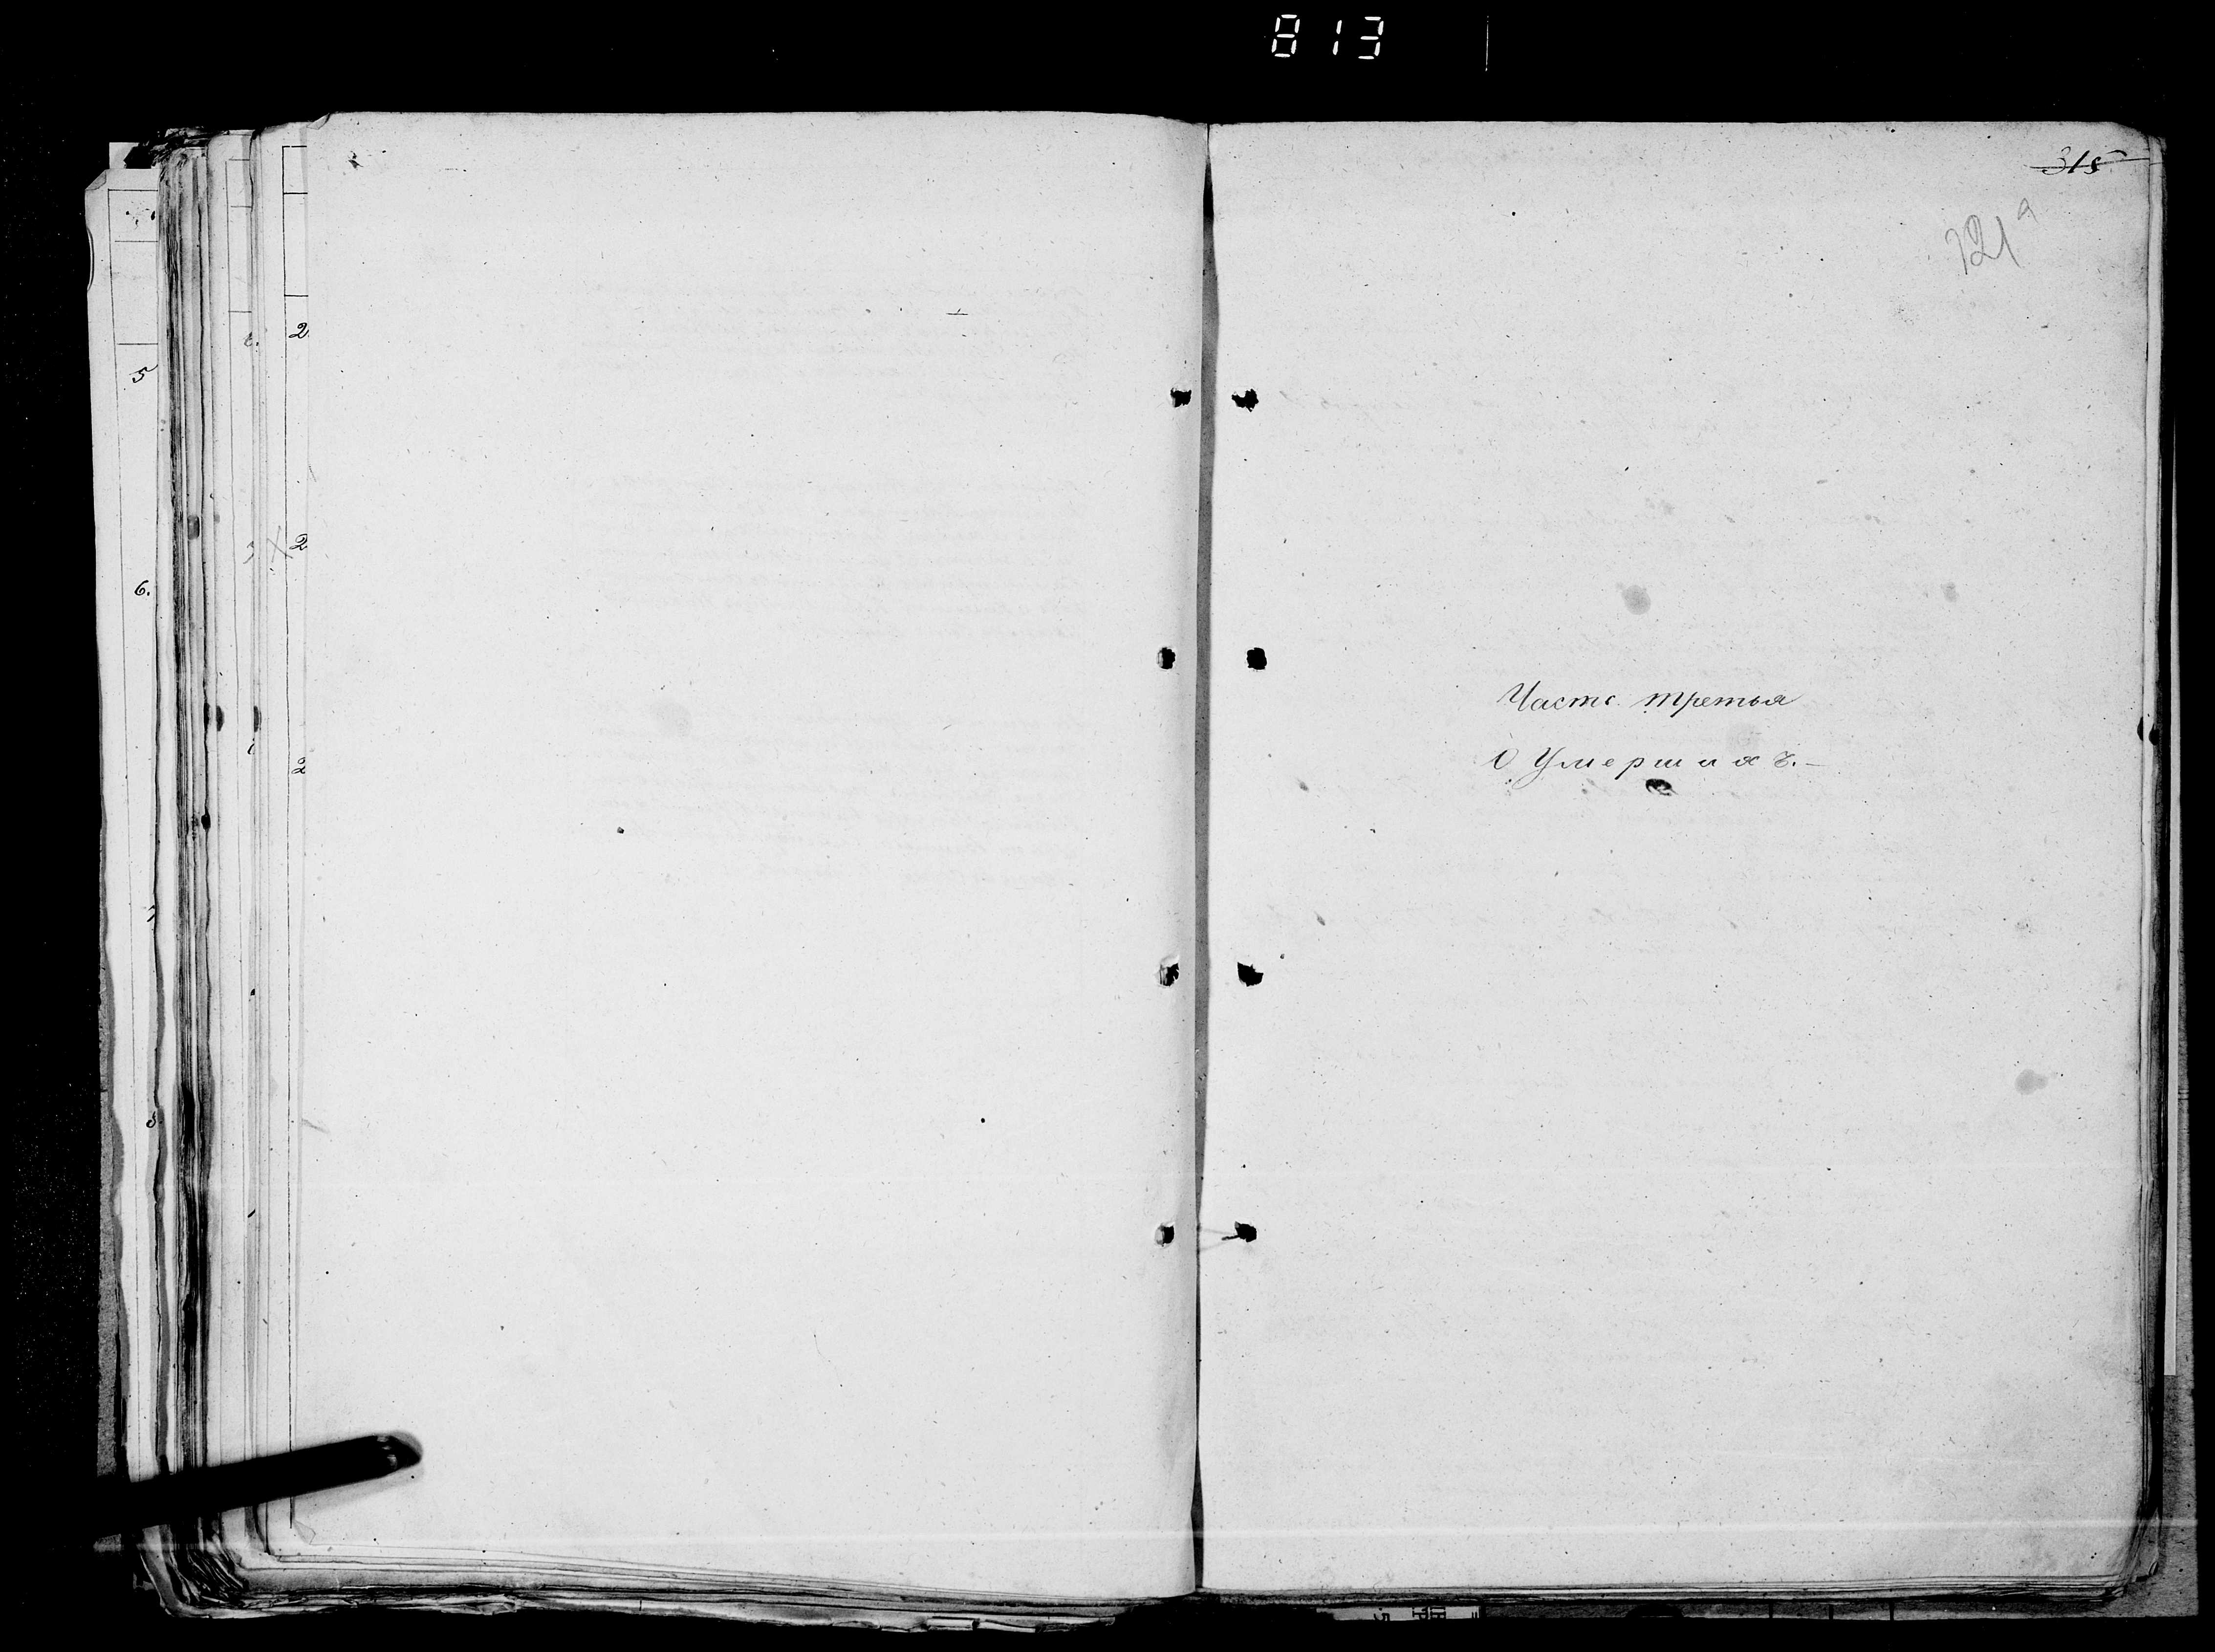 813
315
721 а
5
6.
2.
2
2
Часть третья
О Умершихъ.–